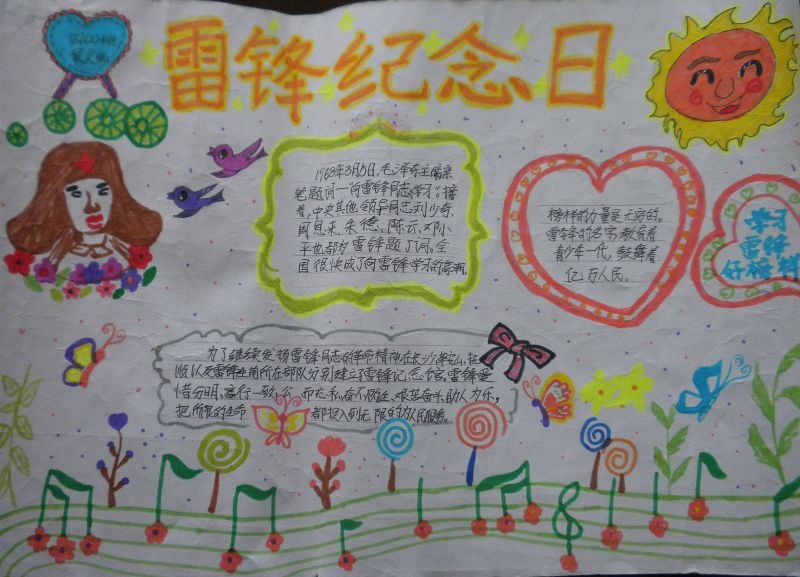 雷锋纪念日
1963年3月5日,毛泽东主席亲
笔题词一"向雷锋同志学习"接
着,中央其他领导同志刘少奇、
周恩来、朱德、陈云、邓小
平也都为雷锋题了词。全
国很快成了向雷锋学习的高潮。
榜样的力量是无穷的。
雷锋的名字教育着
青少年一代,鼓舞着
亿万人民。
学习
雷锋
好榜样
为了继续发扬雷锋同志的革命精神在长沙
顺以及雷锋生前所在部队分别建立了雷锋纪念馆。雷锋爱
憎分明、言行一致、公而无私、奋不顾身、艰苦奋斗、助人为乐,
把所有的生命都投入到无限的为人民服务。